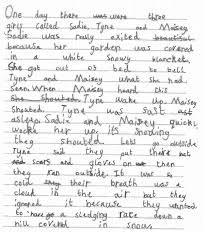 One day there was were three
girls called Sadie, Tyne and Maisey
Sadie was realy exited beautiful
because her garden was covered
in a white snowy blancket.
She got out of bed to tell
Tyne and Maisey what she had
seen. When Maisey heard this
she shouted, Tyne wake up. Maisey
shouted. Tyne was fast
asleep. Sadie and Maisey quickl
wacke her up. its snowing
they shouted Lets go outside
Tyne said they put there hat
and scarf and gloves on then
they ran outside. It was so
cold their breath was a
cloud in the air but they
ignored it because they wanted
to have go a sledging race down a
hill covered in snow.